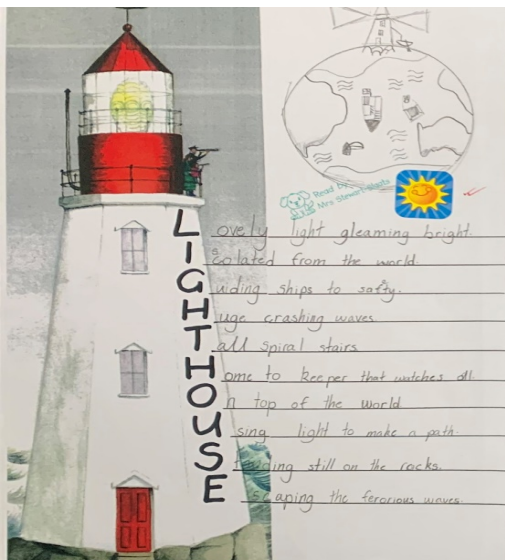 Read by
Mrs Stewart-Watts
Lovely light gleaming bright.
Isolated from the world.
Guiding ships to safty.
Huge crashing waves
Tall spiral stairs
Home to keeper that watches all
On top of the world
Using light to make a path.
Standing still on the rocks.
Escaping the ferorious waves.